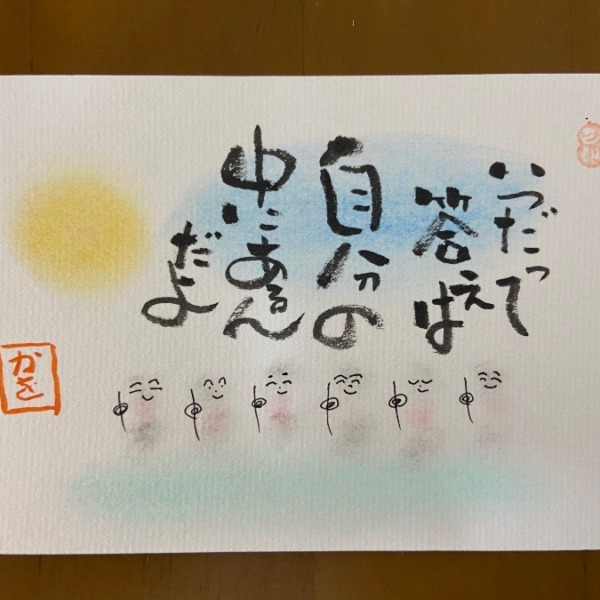 いつだって
答えは
自分の
中にあるん
だよ
かを